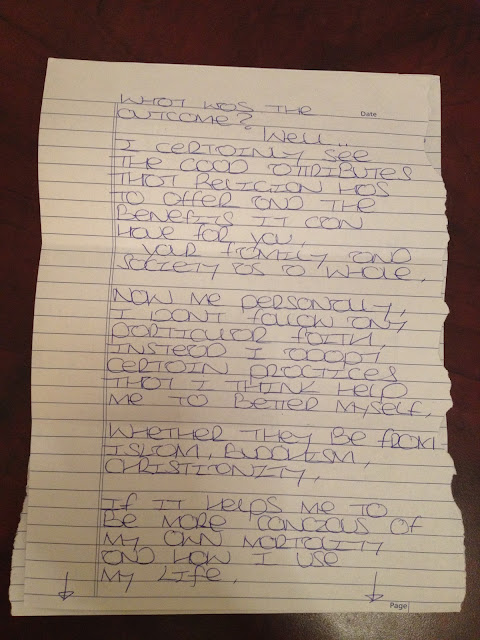 WHAT WAS THE
Date
OUTCOME?
WELL...
I CERTAINLY SEE
THE GOOD ATTRIBUTES
THAT RELIGION HAS
TO OFFER AND THE
BENEFITS IT CAN
HAVE FOR YOU,
YOUR FAMILY AND
SOCIETY AS A WHOLE.
NOW ME PERSONALLY,
I DONT FOLLOW ANY
PARTICULAR FAITH,
INSTEAD I ADOPT
CERTAIN PRACTICES
THAT I THINK HELP
ME TO BETTER MYSELF.
WHETHER THEY BE FROM
ISLAM, BUDDHISM,
CHRISTIANITY,
IF IT HELPS ME TO
BE MORE CONCIOUS OF
MY OWN MORTALITY
AND HOW I USE
MY LIFE.
Page